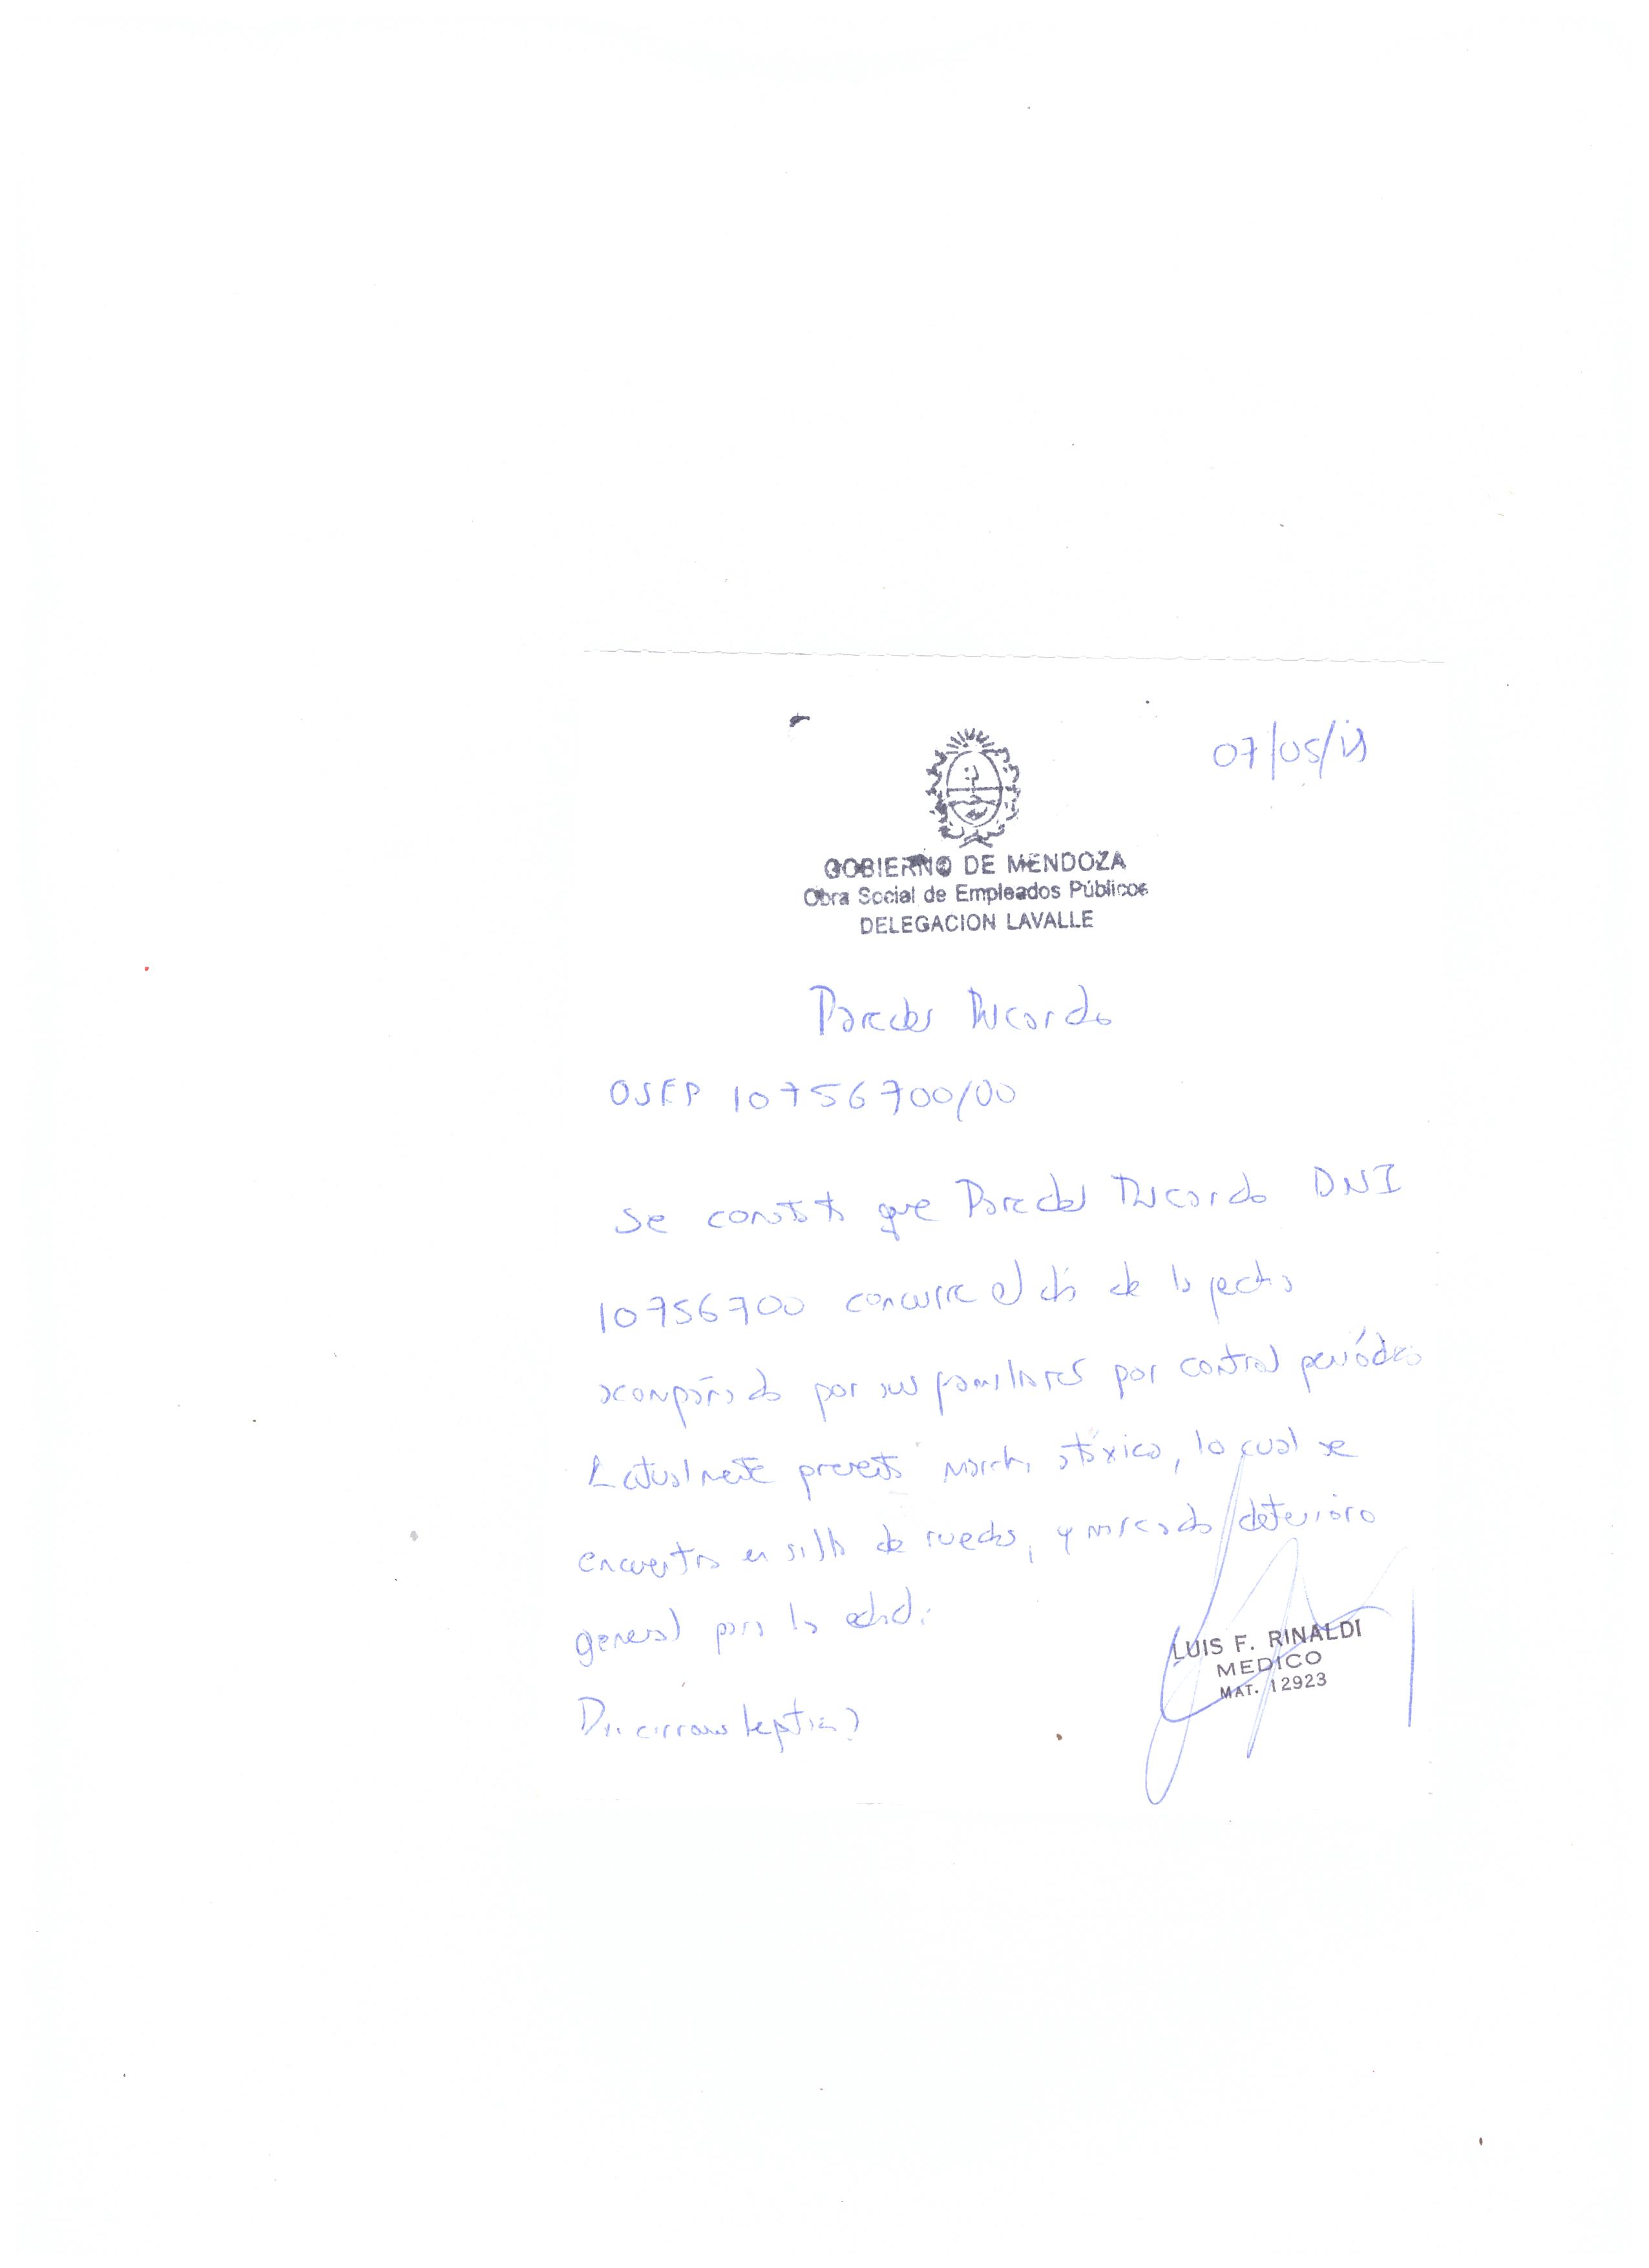 07/05/19
GOBIERNO DE MENDOZA
Obra Social de Empleados Públicos
DELEGACION LAVALLE
Paredes Ricardo
OSEP 10756700/00
Se constata que Paredes Ricardo DNI
10756700 concurre el día de la fecha
acompañado por sus familiares por control periódico
Actualmente presenta marcha atáxica, lo cual se
encuentra en silla de ruedas, y marcado deterioro
general para la edad.
LUIS F. RINALDI
MEDICO
MAT. 12923